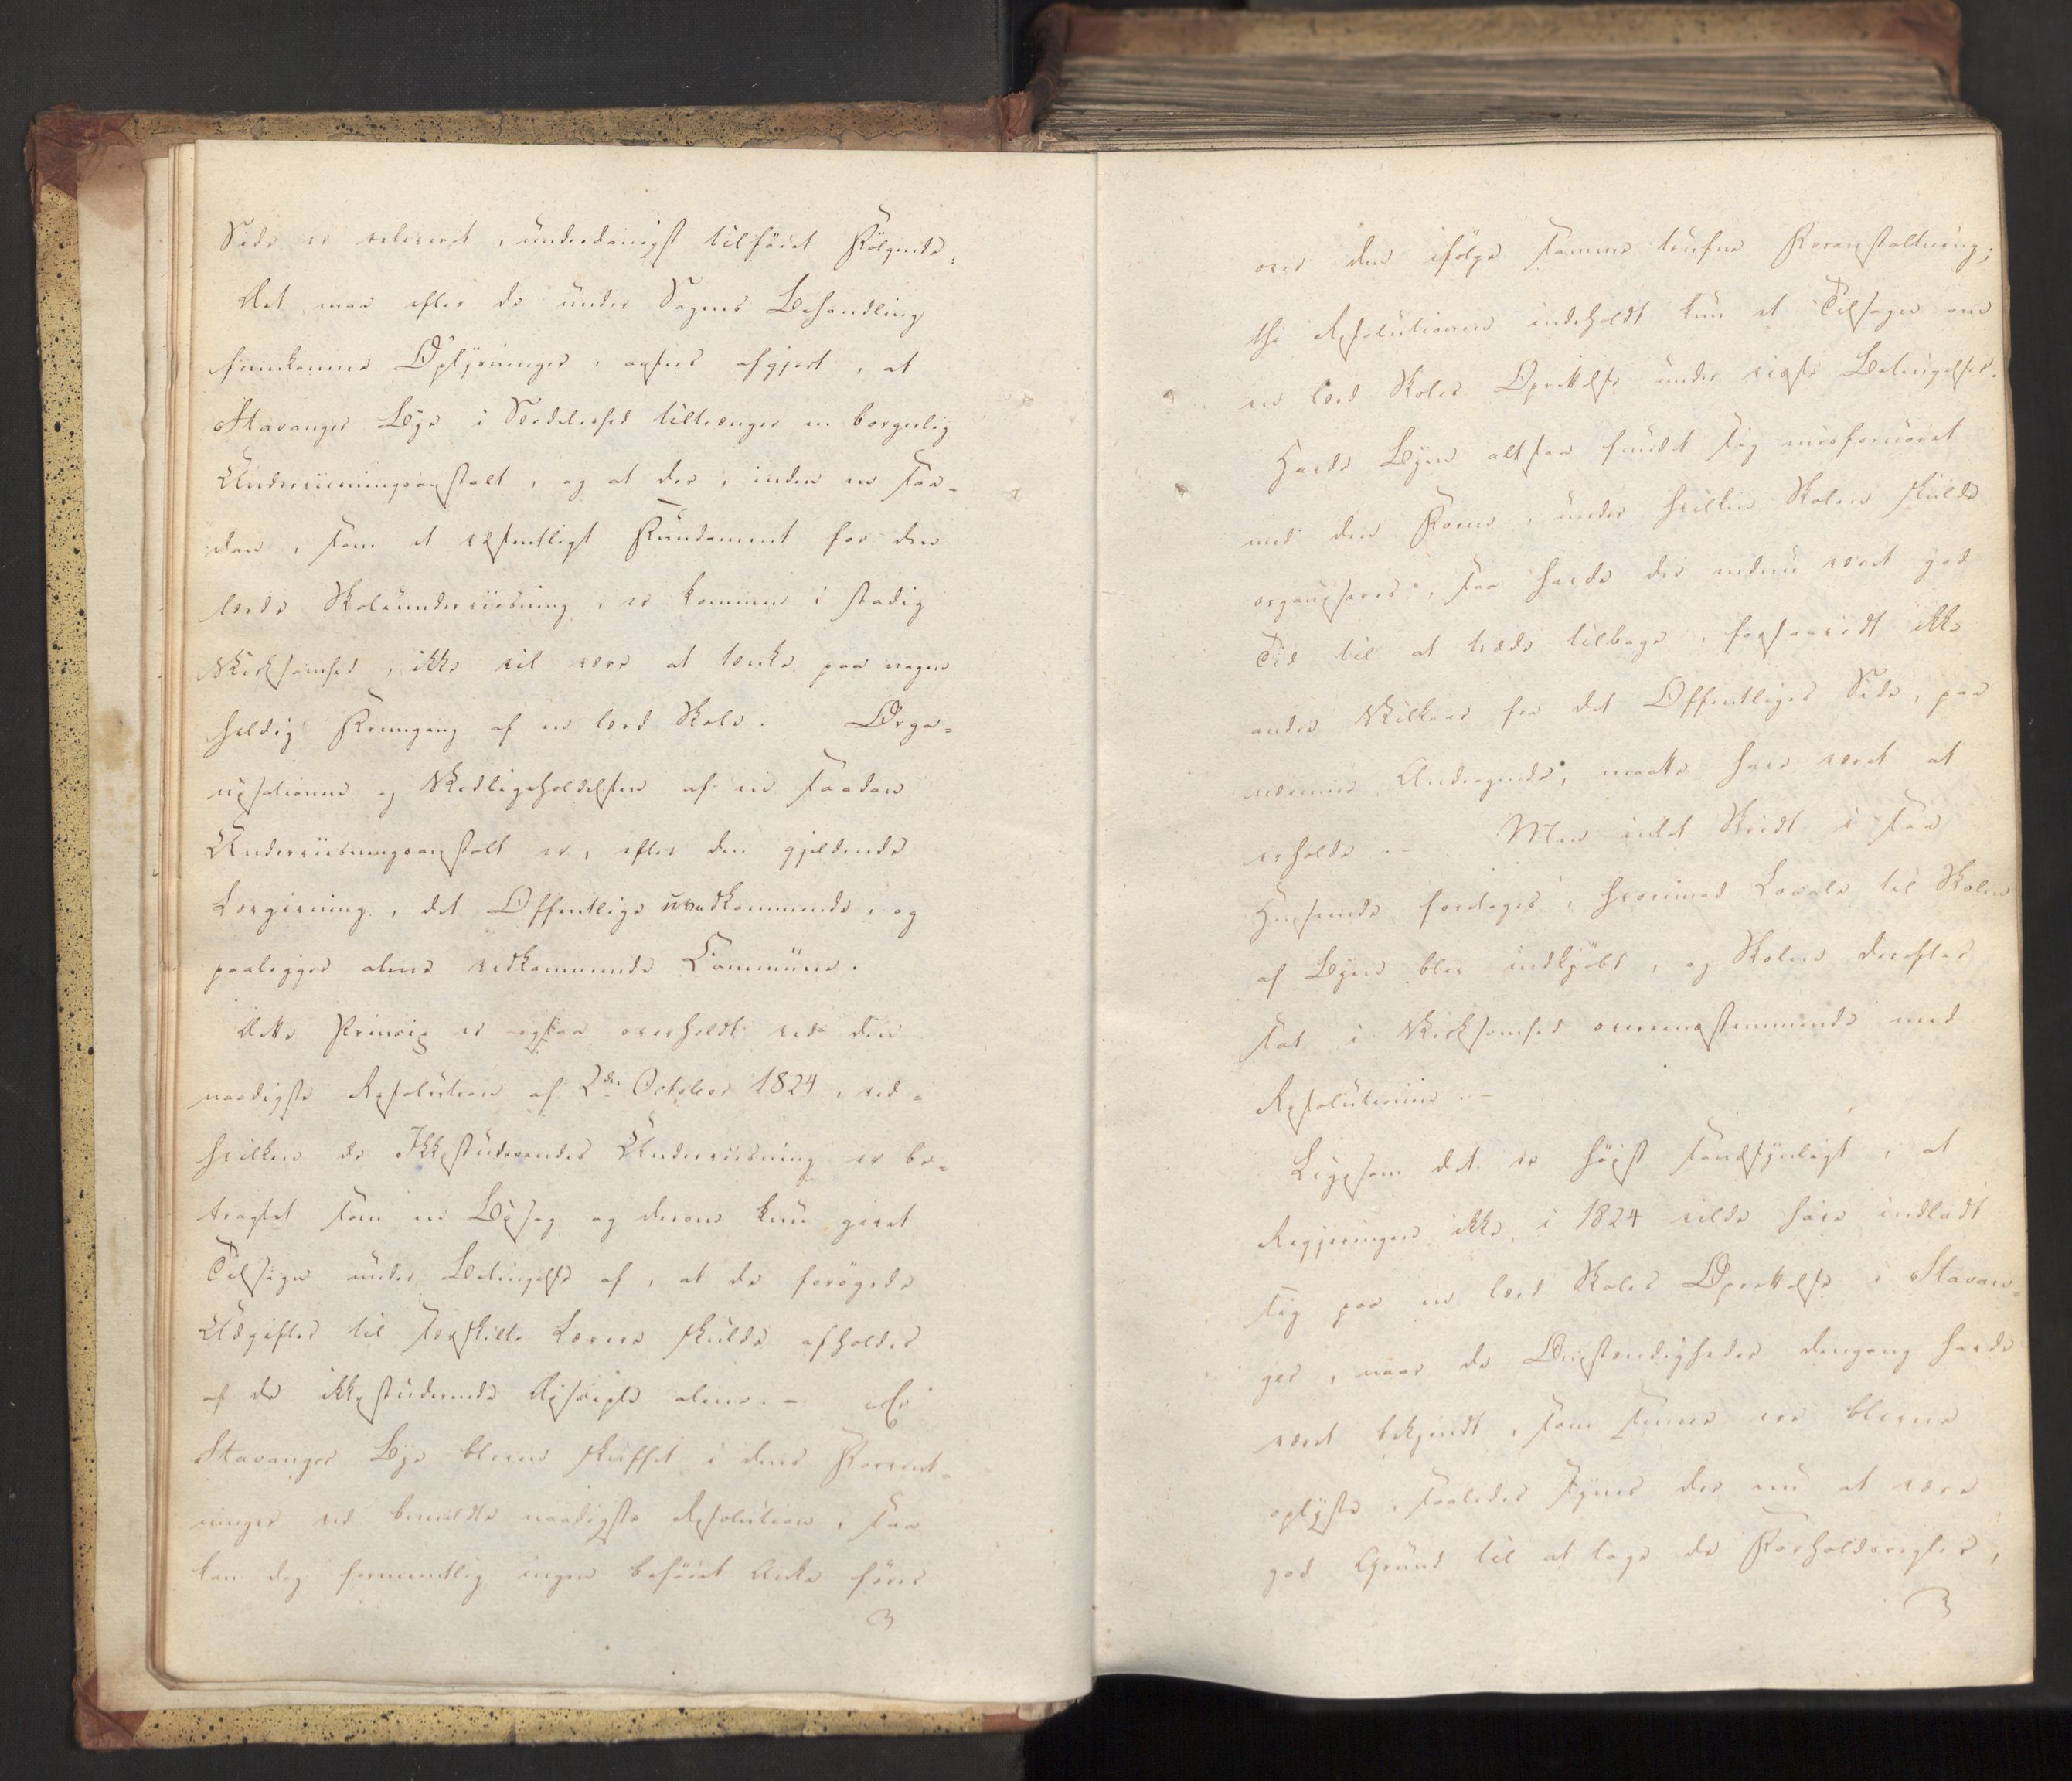 Side er refereret, underdanigst tilføiet Følgende:
Det maa efter de under Sagens Behandling
fremkomne Oplysninger, ansees afgjort, at
Stavanger Bye i Særdeleshed tiltrænger en borgerlig
Underviisningsanstalt, og at der, inden en saa-
dan, som et væsentligt Fundament for den
lærde Skoleunderviisning, er kommen i stadig
Virksomhed, ikke vil være at tænke paa nogen
heldig Fremgang af en lærd Skole. Orga-
nisationen og Vedligeholdelsen af en saadan
Underviisningsanstalt er, efter den gjeldende
Lovgivning, det Offentlige uvedkommende, og
paaligger alene vedkommende Commune.
Dette Princip er ogsaa overholdt ved den
naadigste Resolution af 2den October 1824, ved-
hvilken de Ikkestuderendes Underviisning er be-
tragtet som en Bisag og derom kun givet
Tilsagn under Betingelse af, at de forøgede
Udgifter til særskilte Lærere skulde afholdes
af de ikkestuderende Disciple alene. – Er
Stavanger Bye bleven skuffet i dens Forvent-
ninger ved bemeldte naadigste Resolution, saa
kan dog formeentlig ingen beføiet Anke føres
over den ifølge samme trufne Foranstaltning;
thi Resolutionen indeholdt kun et Tilsagn om
en lærd Skoles Oprettelse under visse Betingelser.
Havde Byen altsaa fundet sig misfornøiet
med den Form, under hvilken Skolen skulde
organiseres, saa havde der endnu været god
Tid til at træde tilbage, forsaavidt ikke
andre Vilkaar fra det Offentliges Side, paa
nærmere Andragende, maatte have været at
erholde. – Men intet Skridt i saa
Henseende foretoges, hvorimod Locale til Skolen
af Byen blev indkjøbt, og Skolen derefter
sat i Virksomhed overensstemmende med
Resolutionen. –
Ligesom det er høist sandsynligt, at
Regjeringen ikke i 1824 vilde have indladt
sig paa en lærd Skoles Oprettelse i Stavan-
ger, naar de Omstændigheder dengang havde
været bekjendt, som senere ere blevne
oplyste, saaledes synes der nu at være
god Grund til at tage de Forholdsregler,